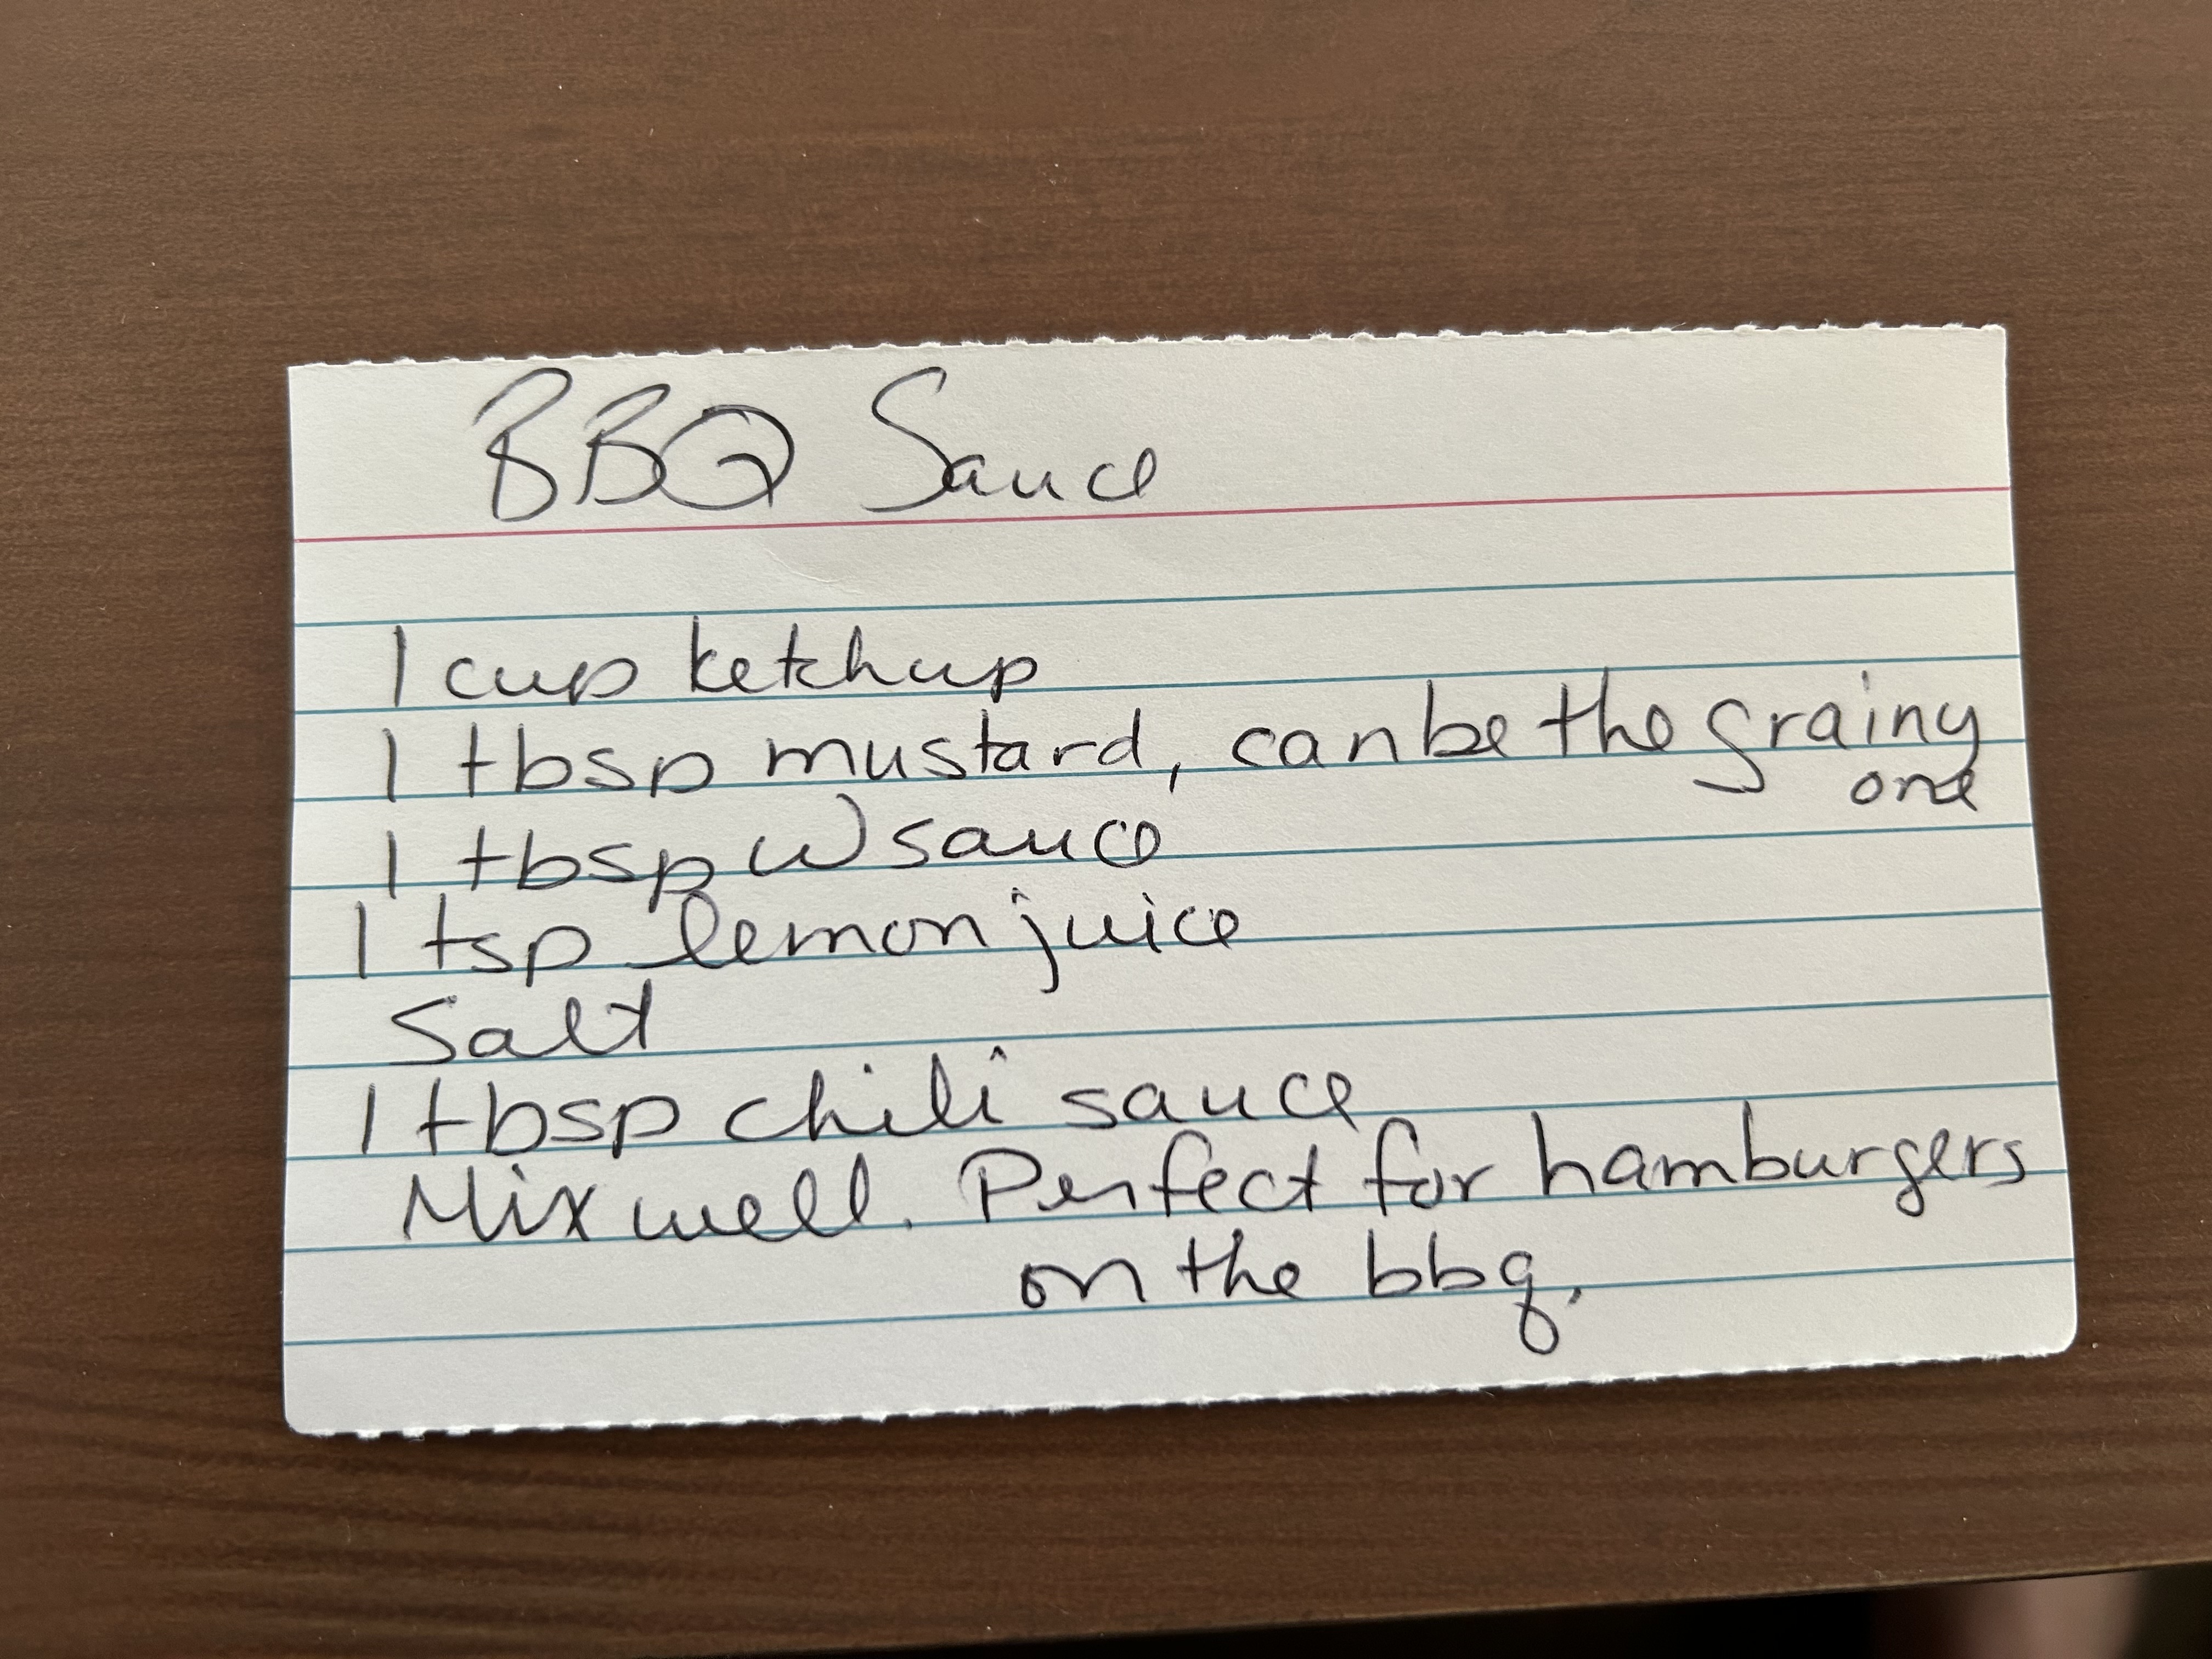 BBQ Sauce
1 cup ketchup
1 tbsp mustard, can be the grainy
one
1 tbsp W sauce
1 tsp lemon juice
Salt
1 tbsp chili sauce
Mix well. Perfect for hamburgers
on the bbq.